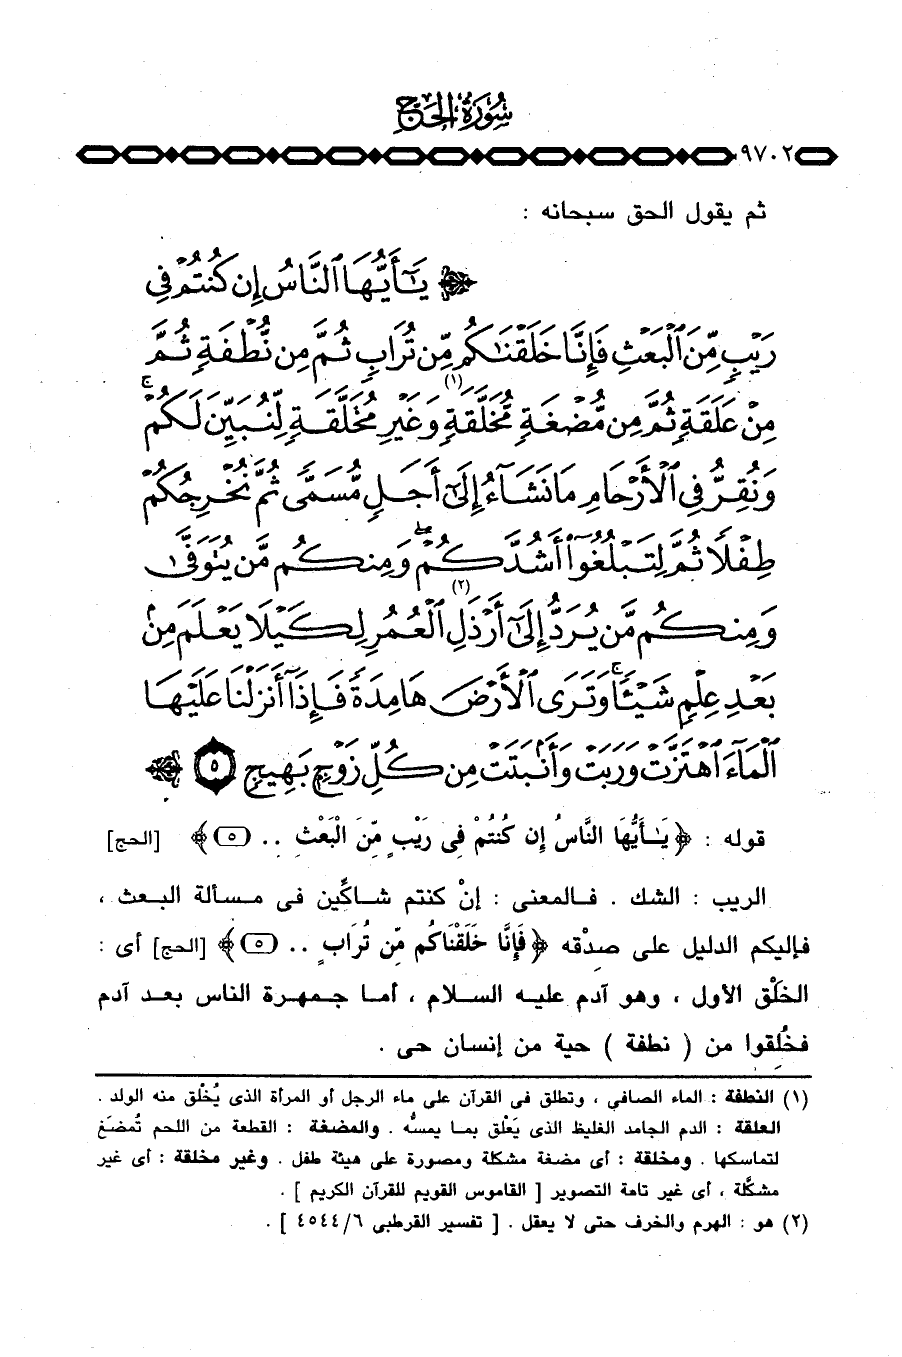 سُورَةُ الحَجِّ
٩٧٠٢
ثم يقول الحق سبحانه :
يَٰٓأَيُّهَا ٱلنَّاسُ إِن كُنتُمْ فِى
رَيْبٍ مِّنَ ٱلْبَعْثِ فَإِنَّا خَلَقْنَٰكُم مِّن تُرَابٍ ثُمَّ مِن نُّطْفَةٍ ثُمَّ
مِنْ عَلَقَةٍ ثُمَّ مِن مُّضْغَةٍ مُّخَلَّقَةٍ (١) وَغَيْرِ مُخَلَّقَةٍ لِّنُبَيِّنَ لَكُمْ ۚ
وَنُقِرُّ فِى ٱلْأَرْحَامِ مَا نَشَآءُ إِلَىٰٓ أَجَلٍ مُّسَمًّى ثُمَّ نُخْرِجُكُمْ
طِفْلًا ثُمَّ لِتَبْلُغُوٓا۟ أَشُدَّكُمْ ۖ وَمِنكُم مَّن يُتَوَفَّىٰ
وَمِنكُم مَّن يُرَدُّ إِلَىٰٓ أَرْذَلِ (٢) ٱلْعُمُرِ لِكَيْلَا يَعْلَمَ مِنۢ
بَعْدِ عِلْمٍ شَيْـًٔا ۚ وَتَرَى ٱلْأَرْضَ هَامِدَةً فَإِذَآ أَنزَلْنَا عَلَيْهَا
ٱلْمَآءَ ٱهْتَزَّتْ وَرَبَتْ وَأَنۢبَتَتْ مِن كُلِّ زَوْجٍۭ بَهِيجٍ ٥
قوله : ﴿ يَـٰأَيُّهَا النَّاسُ إِن كُنتُمْ فِى رَيْبٍ مِّنَ الْبَعْثِ .. (٥) ﴾ [الحج]
الريب : الشك . فالمعنى : إنْ كنتم شاكِّين فى مسألة البعث ،
فإليكم الدليل على صدْقه ﴿ فَإِنَّا خَلَقْنَاكُم مِّن تُرَابٍ .. (٥) ﴾ [الحج] أى :
الخَلْق الأول ، وهو آدم عليه السلام ، أما جمهرة الناس بعد آدم
فخُلِقوا من ( نطفة ) حية من إنسان حى .
(١) النطفة : الماء الصافي ، وتطلق فى القرآن على ماء الرجل أو المرأة الذى يُخْلق منه الولد .
العلقة : الدم الجامد الغليظ الذى يَعْلق بما يمسُّه . والمضغة : القطعة من اللحم تُمضَغ
لتماسكها . ومخلقة : أى مضغة مشكلة ومصورة على هيئة طفل . وغير مخلقة : أى غير
مشكَّلة ، أى غير تامة التصوير [ القاموس القويم للقرآن الكريم ] .
(٢) هو : الهرم والخرف حتى لا يعقل . [ تفسير القرطبى ٤٥٤٤/٦ ] .